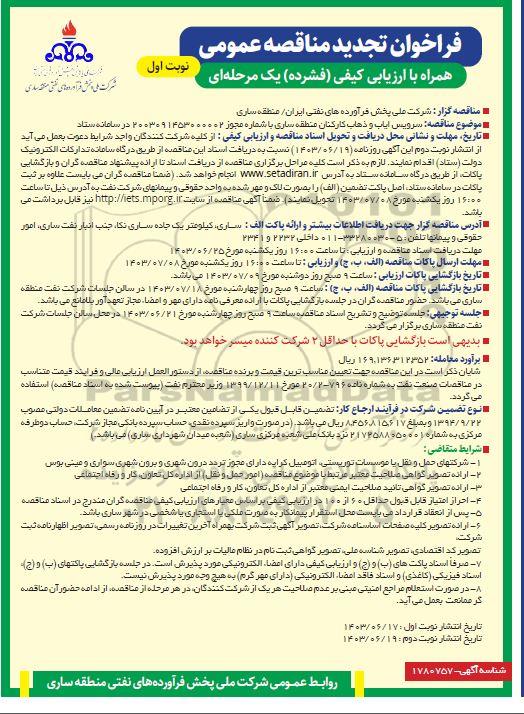 فراخوان تجدید مناقصه عمومی
همراه با ارزیابی کیفی (فشرده) یک مرحله‌ای
نوبت اول
شرکت ملی پخش فرآورده‌های نفتی منطقه ساری
مناقصه گزار : شرکت ملی پخش فرآورده های نفتی ایران/ منطقه ساری
موضوع مناقصه: سرویس ایاب و ذهاب کارکنان منطقه ساری با شماره مجوز ۲۰۰۳۰۹۱۴۵۳۰۰۰۰۰۲ در سامانه ستاد
تاریخ، مهلت و نشانی محل دریافت و تحویل اسناد مناقصه و ارزیابی کیفی : از کلیه شرکت کنندگان واجد شرایط دعوت بعمل می آید
از انتشار نوبت دوم این آگهی روزنامه (۱۴۰۳/۰۶/۱۹) نسبت به دریافت اسناد این مناقصه از طریق درگاه سامانه تدارکات الکترونیک
دولت (ستاد) اقدام نمایند. لازم به ذکر است کلیه مراحل برگزاری مناقصه از دریافت اسناد تا ارائه پیشنهاد مناقصه گران و بازگشایی
پاکات، از طریق درگاه سامانه ستاد به آدرس www.setadiran.ir انجام خواهد شد. (ضمنا مناقصه گران می بایست علاوه بر ثبت
پاکات در سامانه ستاد، اصل پاکت تضمین (الف) را بصورت لاک و مهر شده به واحد حقوقی و پیمانهای شرکت نفت به آدرس ذیل تا ساعت
۱۶:۰۰ روز یکشنبه مورخ ۱۴۰۳/۰۷/۰۸ تحویل نمایند). ضمناً آگهی مناقصه از سایت http://iets.mporg.ir نیز قابل برداشت می
باشد.
آدرس مناقصه گزار جهت دریافت اطلاعات بیشتر و ارائه پاکت الف : ساری، کیلومتر یک جاده ساری نکا، جنب انبار نفت ساری، امور
حقوقی و پیمانها تلفن : ۵-۳۳۲۸۰۰۳۰-۰۱۱ داخلی ۲۲۳۲ و ۲۳۴۱
مهلت دریافت اسناد مناقصه و ارزیابی : تا ساعت ۱۶:۰۰ روز یکشنبه مورخ ۱۴۰۳/۰۶/۲۵
مهلت ارسال پاکات مناقصه (الف، ب، ج) و ارزیابی : تا ساعت ۱۶:۰۰ روز یکشنبه مورخ ۱۴۰۳/۰۷/۰۸
تاریخ بازگشایی پاکات ارزیابی : ساعت ۹ صبح روز دوشنبه مورخ ۱۴۰۳/۰۷/۰۹ می باشد.
تاریخ بازگشایی پاکات مناقصه (الف، ب، ج) : ساعت ۹ صبح روز چهارشنبه مورخ ۱۴۰۳/۰۷/۱۸ در سالن جلسات شرکت نفت منطقه
ساری می باشد. حضور مناقصه گران در جلسه بازگشایی پاکات با ارائه معرفی نامه دارای مهر و امضا، مجاز تعهدآور بلامانع می باشد.
جلسه توجیهی: جلسه توضیح و تشریح اسناد مناقصه ساعت ۹ صبح روز چهارشنبه مورخ ۱۴۰۳/۰۶/۲۱ در محل سالن جلسات شرکت
نفت منطقه ساری برگزار می گردد.
بدیهی است بازگشایی پاکات با حداقل ۲ شرکت کننده میسر خواهد بود.
برآورد معامله: ۱۶۹,۱۳۶,۳۱۲,۳۵۲ ریال
شایان ذکر است در این مناقصه جهت تعیین مناسب ترین قیمت و برنده مناقصه، از دستور العمل ارزیابی مالی و فرایند قیمت متناسب
در مناقصات صنعت نفت به شماره نامه ۷۹۶-۲۰/۲ مورخ ۱۳۹۹/۱۲/۱۱ وزیر محترم نفت (پیوست شده به اسناد مناقصه) استفاده
می گردد.
نوع تضمین شرکت در فرآیند ارجاع کار: تضمین قابل قبول یکی از تضامین معتبر در آیین نامه تضمین معاملات دولتی مصوب
۱۳۹۴/۹/۲۲ و بمبلغ ۸,۴۵۶,۸۱۵,۶۱۷ ریال می باشد. (در صورت واریز سپرده نقدی، حساب سپرده بانکی مجاز شرکت، حساب دو طرفه
مرکزی به شماره ۲۱۷۲۵۸۸۰۵۰۰۰۱ نزد بانک ملی شعبه مرکزی ساری (شعبه میدان شهرداری ساری) می باشد).
شرایط متقاضی:
۱- شرکتهای حمل و نقل یا موسسات توریستی، اتومبیل کرایه دارای مجوز تردد درون شهری و برون شهری سواری و مینی بوس
۲- ارائه تصویر گواهی صلاحیت معتبر مرتبط با موضوع مناقصه (امور حمل و نقل) از اداره کل تعاون، کار و رفاه اجتماعی
۳- ارائه تصویر گواهی تائید صلاحیت ایمنی معتبر از اداره کل تعاون، کار و رفاه اجتماعی
۴- احراز امتیاز قابل قبول حداقل ۶۰ از ۱۰۰ در ارزیابی کیفی بر اساس معیارهای ارزیابی کیفی مناقصه گران مندرج در اسناد مناقصه
۵- پس از انعقاد قرارداد می بایست محل استقرار پیمانکار به صورت ملکی یا استیجاری یا شخصی در شهر ساری باشد.
۶- ارائه تصویر کلیه صفحات اساسنامه شرکت، تصویر آگهی ثبت شرکت بهمراه آخرین تغییرات در روزنامه رسمی، تصویر اظهارنامه ثبت
شرکت،
تصویر کد اقتصادی، تصویر شناسه ملی، تصویر گواهی ثبت نام در نظام مالیات بر ارزش افزوده.
۷- صرفا اسناد پاکت های (ب) و (ج) و ارزیابی کیفی دارای امضا، الکترونیکی مورد پذیرش است. در جلسه بازگشایی پاکتهای (ب) و (ج)،
اسناد فیزیکی (کاغذی) و اسناد فاقد امضا، الکترونیکی (دارای مهر گرم) به هیچ وجه مورد پذیرش نیست.
۸- در صورت استعلام مراجع امنیتی مبنی بر عدم صلاحیت هر یک از شرکت کنندگان، در هر مرحله از مناقصه، از ادامه حضور آن مناقصه
گر ممانعت بعمل می آید.
تاریخ انتشار نوبت اول : ۱۴۰۳/۰۶/۱۷
تاریخ انتشار نوبت دوم : ۱۴۰۳/۰۶/۱۹
شناسه آگهی- ۱۷۸۰۷۵۷
روابط عمومی شرکت ملی پخش فرآورده‌های نفتی منطقه ساری
ParsNamadData